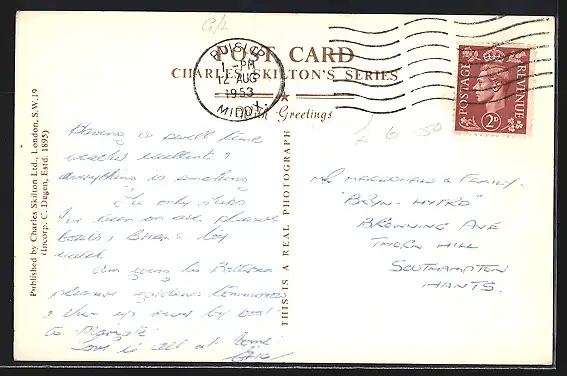 G/L
POST CARD
CHARLES SKILTON'S SERIES
With Greetings
RUISLIP
-PM
12 AUG
1953
MIDDX
POSTAGE
REVENUE
2D
£ 6.50
Published by Charles Skilton Ltd., London, S.W.19
(Incorp. C. Degen, Estd. 1895)
THIS IS A REAL PHOTOGRAPH
Having a swell time
weather excellent &
everything is smashing
The only ships
I've been on are pleasure
boats,
week
Am going to Battersea
pleasure gardens tomorrow
& then up river by boat
to Margate
Love to all at home
& FAMILY.
"BRYN-HYFRD"
BROWNING AVE
THORN HILL
SOUTHAMPTON
HANTS.